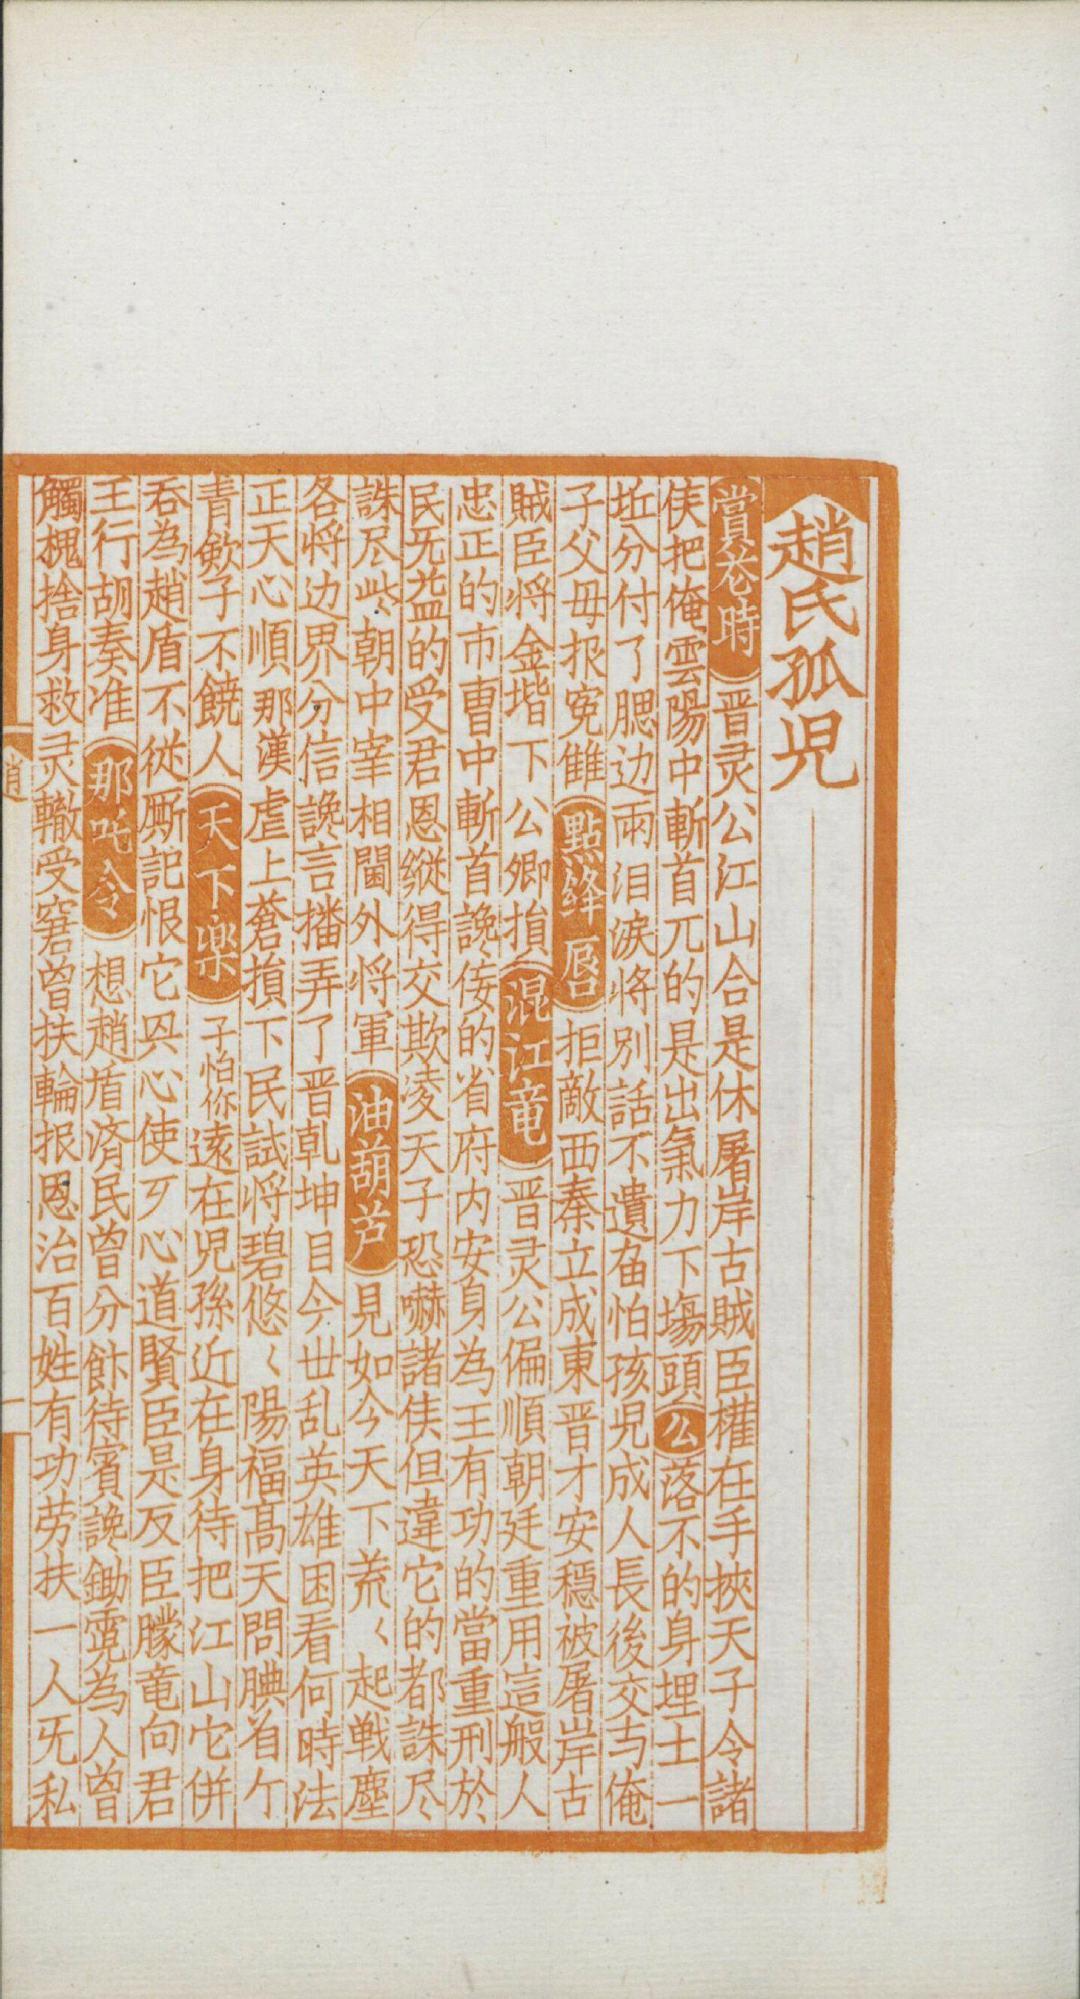 趙氏孤児
賞花時 晋灵公江山合是休屠岸古賊臣權在手挾天子令諸
侯把俺雲陽中斬首兀的是出氣力下塲頭 公 落不的身埋土一
坵分付了腮边兩泪淚将別話不遺留怕孩児成人長後交与俺
子父母报寃雠 點絳唇 拒敵西秦立成東晋才安穩被屠岸古
賊臣将金堦下公卿損 混江竜 晋灵公偏順朝廷重用這般人
忠正的市曹中斬首讒佞的省府内安身為王有功的當重刑於
民无益的受君恩縱得交欺凌天子恐嚇諸侯但違它的都誅尽
誅尽些朝中宰相閫外将軍 油葫芦 見如今天下荒〻起戦塵
各将边界分信讒言播弄了晋乹坤目今世乱英雄困看何時法
正天心順那漢虐上蒼損下民試将碧悠〻陽福髙天問腆着个
青歆子不饒人 天下楽 子怕你遠在児孫近在身待把江山它併
吞為趙盾不從厮記恨它㒷心使歹心道賢臣是反臣朦竜向君
王行胡奏准 那吒令 想趙盾済民曾分飰待賓讒鋤霓為人曽
觸槐捨身救灵轍受窘曾扶輪报恩治百姓有功労扶一人旡私
趙
一